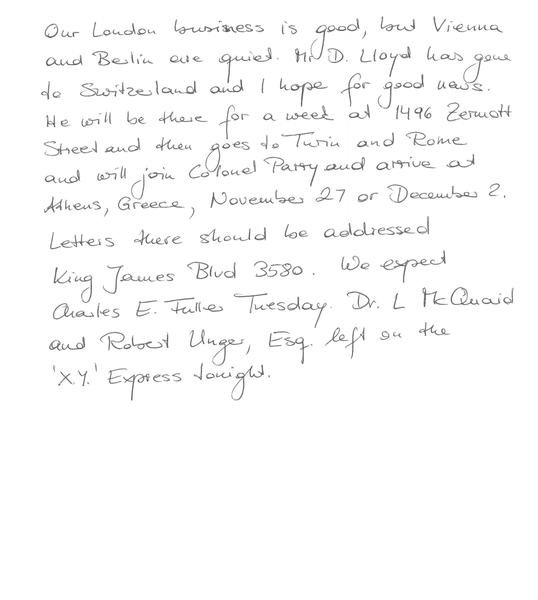 Our London business is good, but Vienna
and Berlin are quiet. Mr. D. Lloyd has gone
to Switzerland and I hope for good news.
He will be there for a week at 1496 Zermott
Street and then goes to Turin and Rome
and will join Colonel Parry and arrive at
Athens, Greece, November 27 or December 2.
Letters there should be addressed
King James Blvd 3580. We expect
Charles E. Fuller Tuesday. Dr. L McQuaid
and Robert Unger, Esq. left on the
'X.Y.' Express tonight.